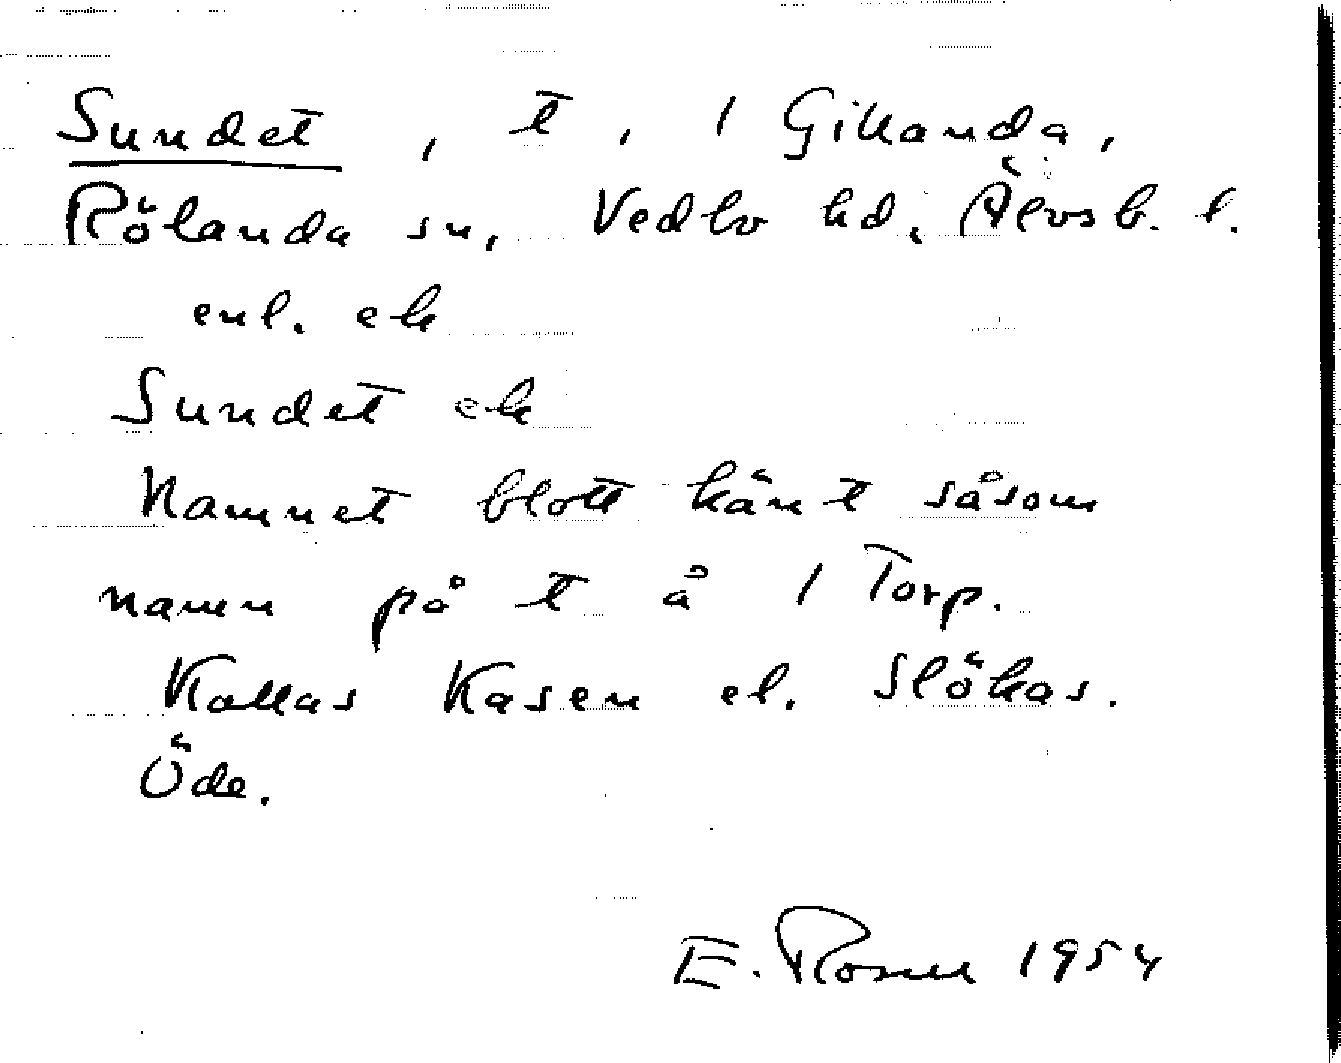 Sundet, t, 1 Gillanda,
Rölanda sn, Vedbo hd, Älvsb. l.
enl. ek
Sundet ek
Namnet blott känt såsom
namn på t å 1 Torp.
Kallas Kasen el. Slökas.
Öde.
E. Rosell 1954